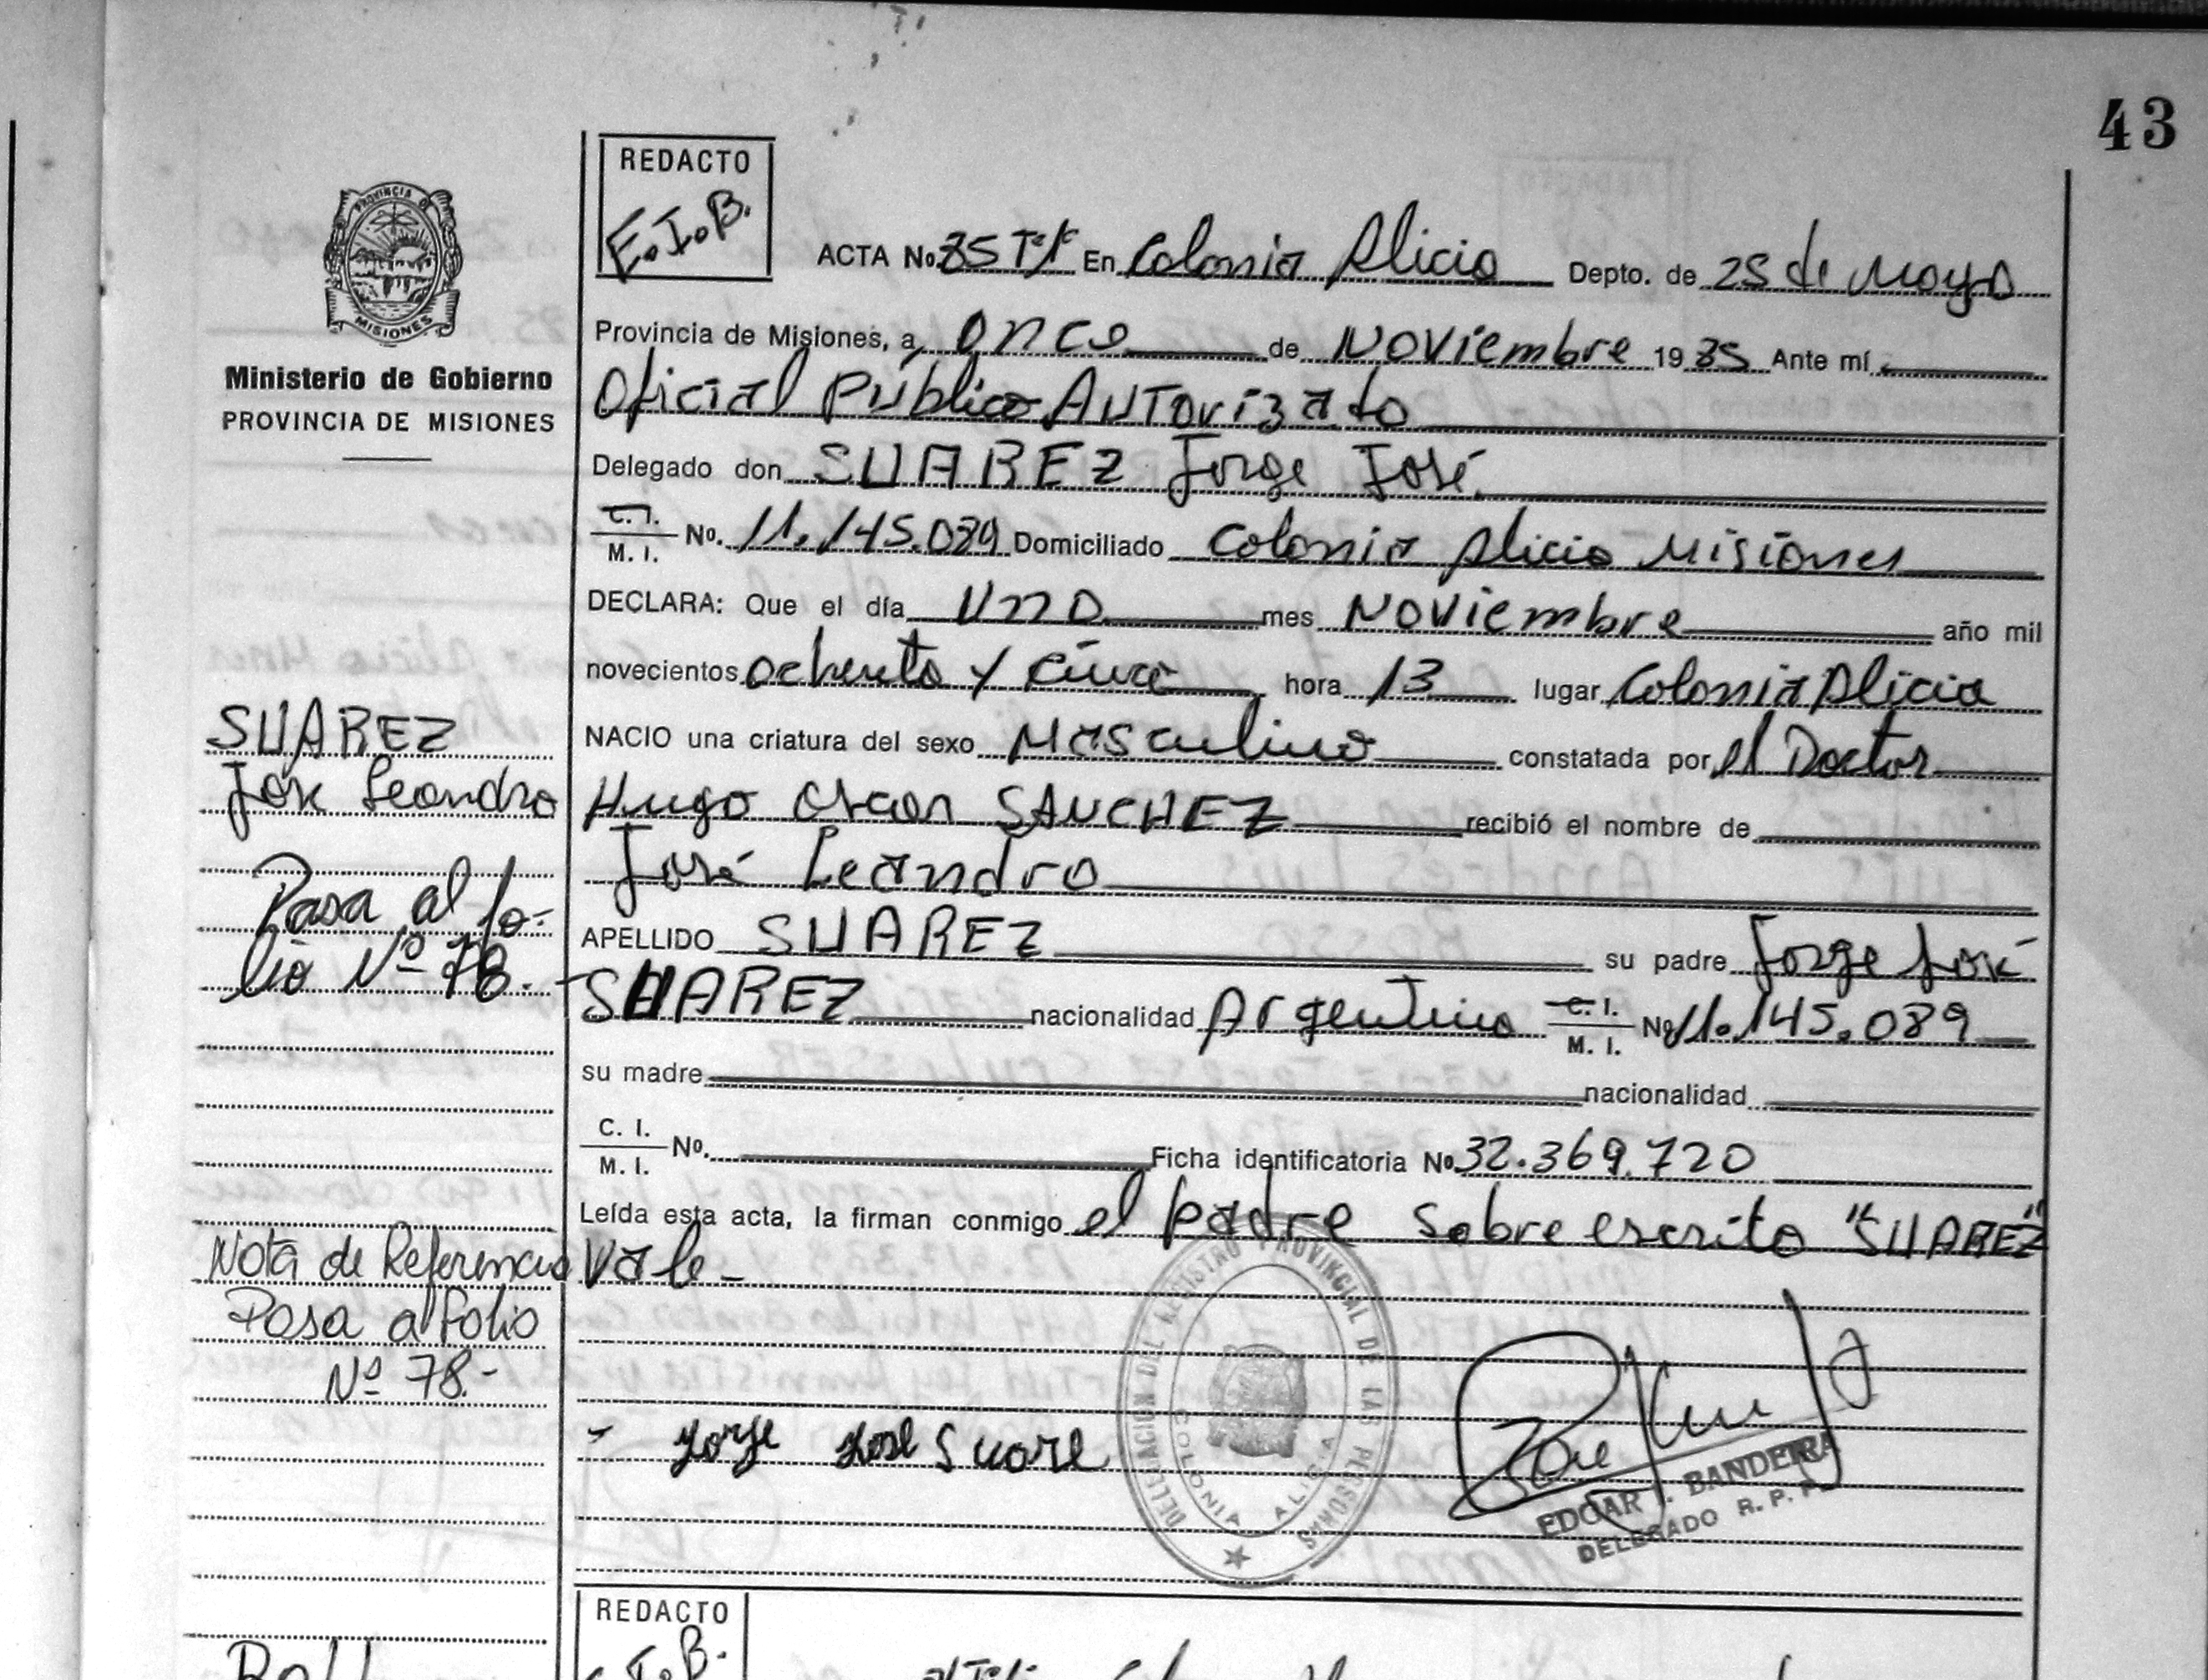 43
REDACTO
E.I.B.
PROVINCIA D
MISIONES
Ministerio de Gobierno
PROVINCIA DE MISIONES
ACTA No. 85 Tº1º En Colonia Alicia Depto. de 25 de Mayo
Provincia de Misiones, a once de Noviembre 19 85 Ante mí
Oficial Público Autorizato
Delegado don SUAREZ Jorge José
C. I. / M. I. No. 11.145.089 Domiciliado Colonia Alicia Misiones
DECLARA: Que el día Uno mes Noviembre año mil
novecientos ochenta y cinco hora 13 lugar Colonia Alicia
NACIO una criatura del sexo Masculino constatada por el Doctor
Hugo Oscar SANCHEZ recibió el nombre de
José Leandro
APELLIDO SUAREZ su padre Jorge José
SUAREZ nacionalidad Argentino C. I. / M. I. No 11.145.089
su madre nacionalidad
C. I. / M. I. No. Ficha identificatoria No 32.369.720
Leída esta acta, la firman conmigo el padre Sobre escrito "SUAREZ"
Vale -
SUAREZ
José Leandro
Pasa al fo-
lio Nº 78.-
Nota de Referencia
Pasa al Folio
Nº 78.-
- Jorje José Suare
DELEGACION DEL REGISTRO PROVINCIAL DE LAS PERSONAS
COLONIA ALICIA
EDGAR I. BANDEIRA
DELEGADO R. P. P.
REDACTO
E.I.B.